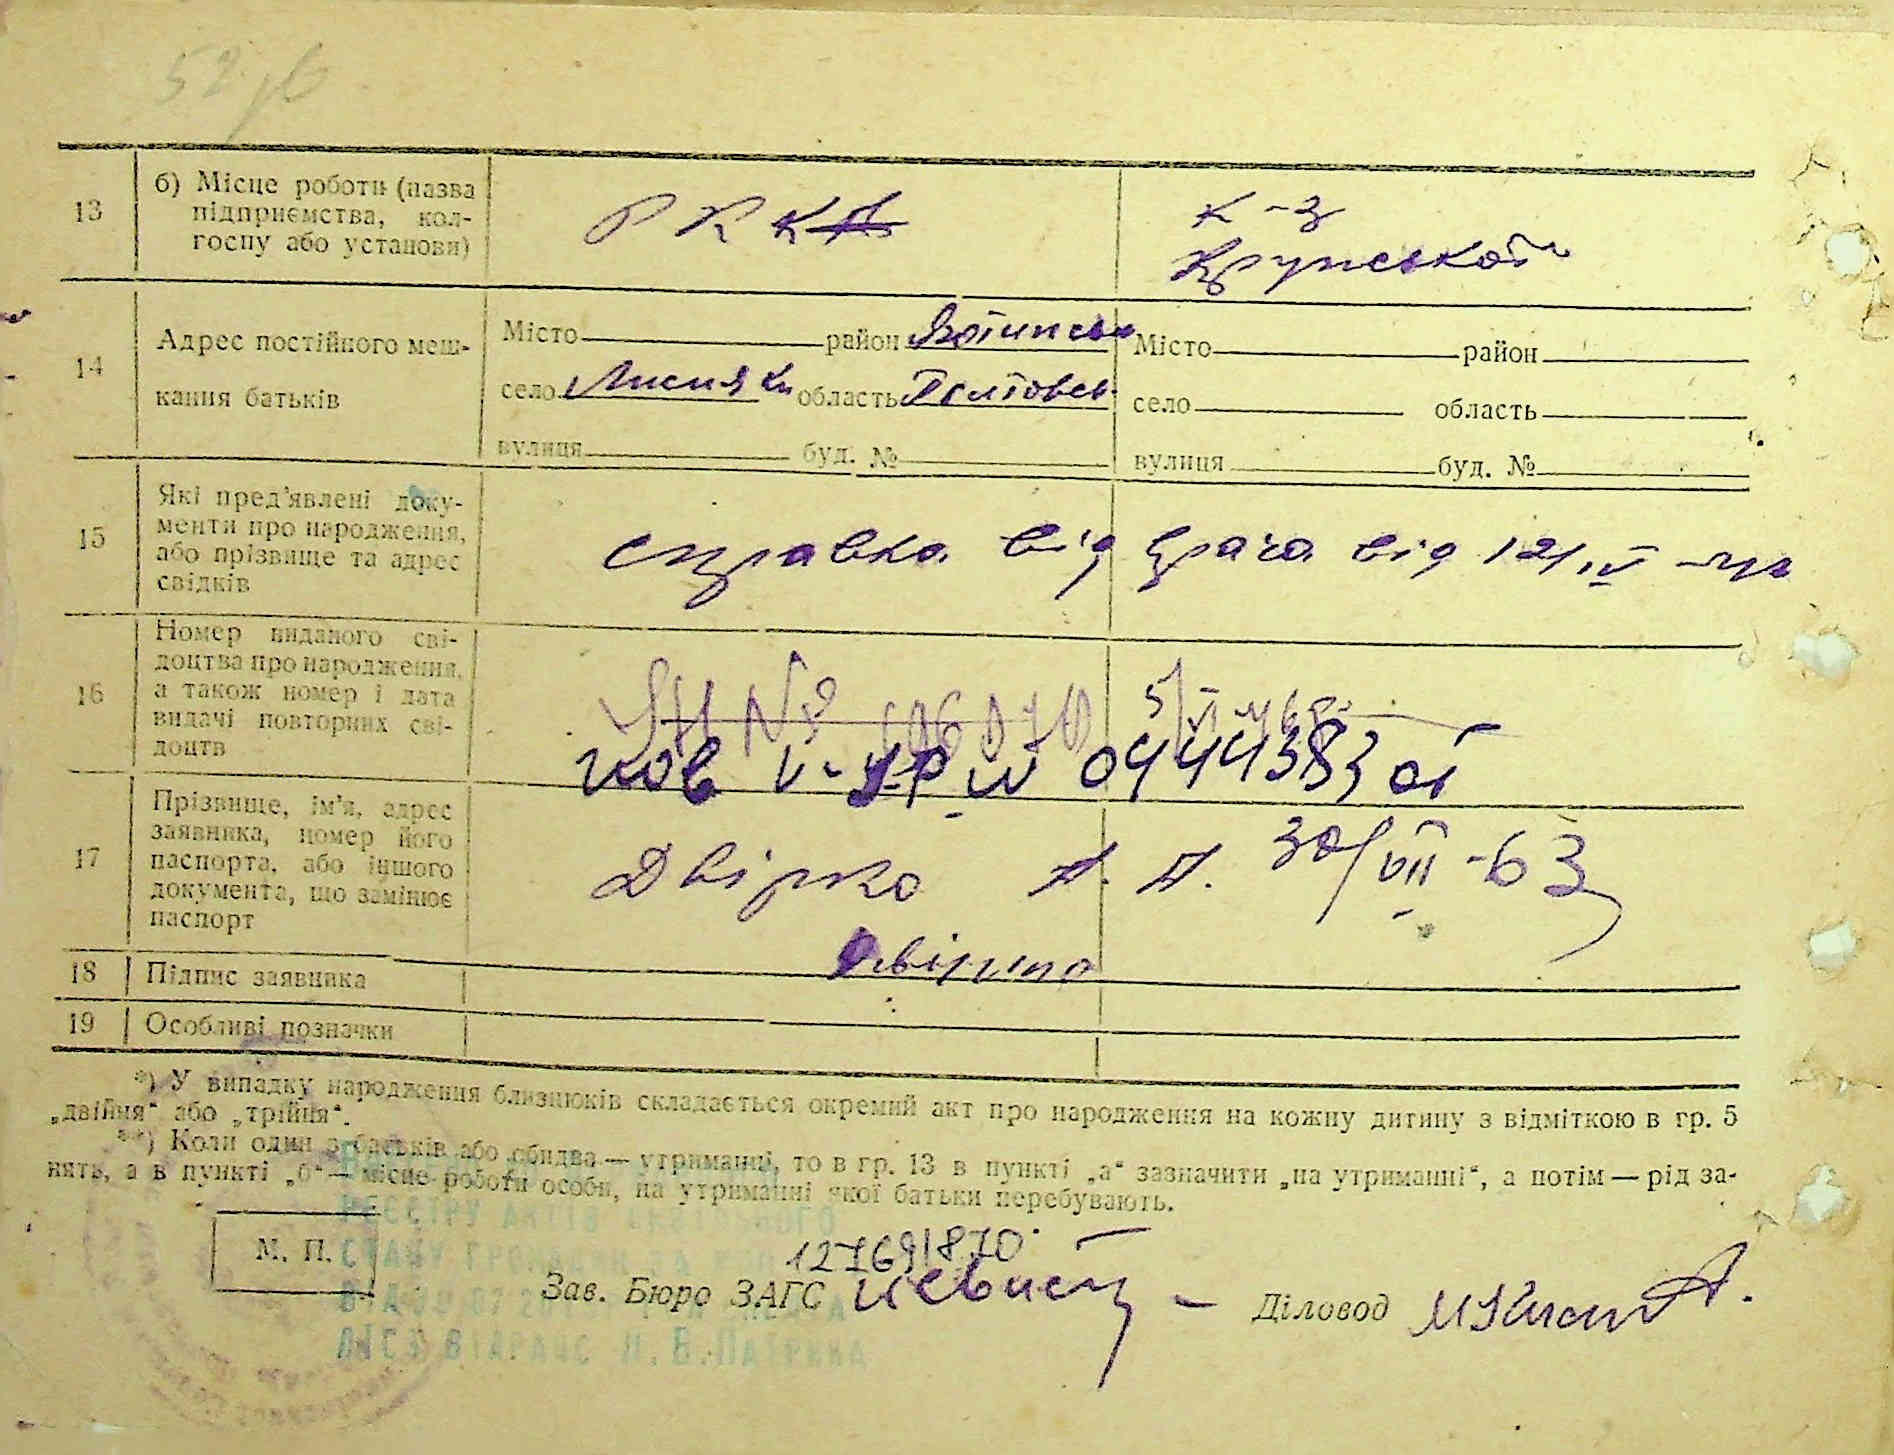 13
б) Місце роботи (назва
підприємства, кол-
госпу або установи)
Р К К А
К-з
Крупської
14
Адрес постійного меш-
кання батьків
Місто район Яготинськ
село Лисняки область Полтовсь.
вулиця буд. №
Місто район
село область
вулиця буд. №
15
Які пред'явлені доку-
менти про народження,
або прізвище та адрес
свідків
справка від врача від 12/IV
16
Номер виданого сві-
доцтва про народження,
а також номер і дата
видачі повторних сві-
доцтв
№ 106070
пов V-УР № 0444383 от
30/VII-63
17
Прізвище, ім'я, адрес
заявника, номер його
паспорта, або іншого
документа, що замінює
паспорт
Двірко А. А.
18
Підпис заявника
Двірко
19
Особливі позначки
*) У випадку народження близнюків складається окремий акт про народження на кожну дитину з відміткою в гр. 5
„двійня“ або „трійня“.
**) Коли один з батьків або обидва — утриманці, то в гр. 13 в пункті „а“ зазначити „на утриманні“, а потім — рід за-
нять, а в пункті „б“ — місце роботи особи, на утриманні якої батьки перебувають.
М. П.
127691870
Зав. Бюро ЗАГС
Діловод